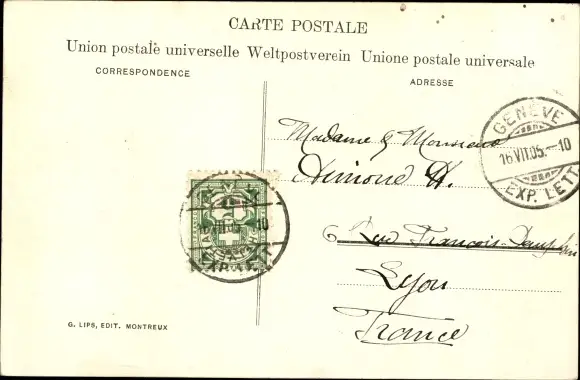 CARTE POSTALE
Union postale universelle Weltpostverein Unione postale universale
CORRESPONDENCE
ADRESSE
GENÈVE
16 VII.05.–10
EXP. LETT.
Madame & Monsieur
Aimone A.
6 Rue François-Dauphin
Lyon
France
16 VII.05.–10
EXP. LETT.
G. LIPS, EDIT. MONTREUX